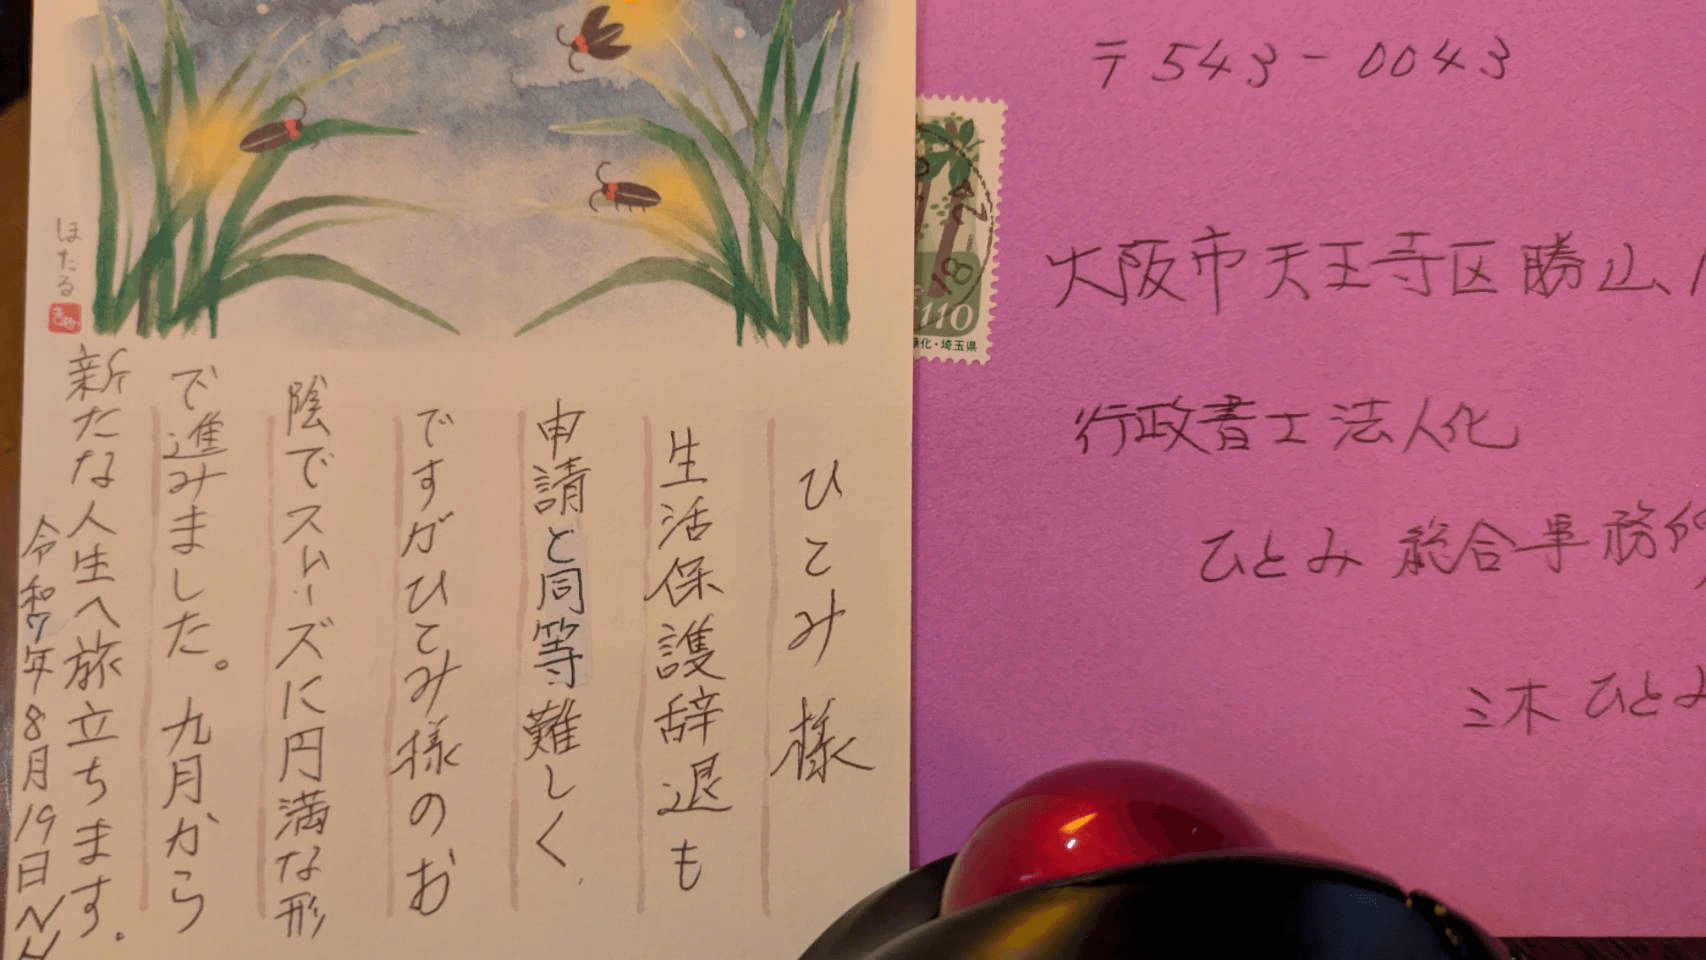 ひとみ様
生活保護辞退も
申請と同等難しく
ですがひとみ様のお
陰でスムーズに円満な形
で進みました。九月から
新たな人生へ旅立ちます。
令和7年8月19日
ほたる
〒543-0043
大阪市天王寺区勝山
行政書士法人化
ひとみ総合事務所
三木ひとみ
110
緑化・埼玉県